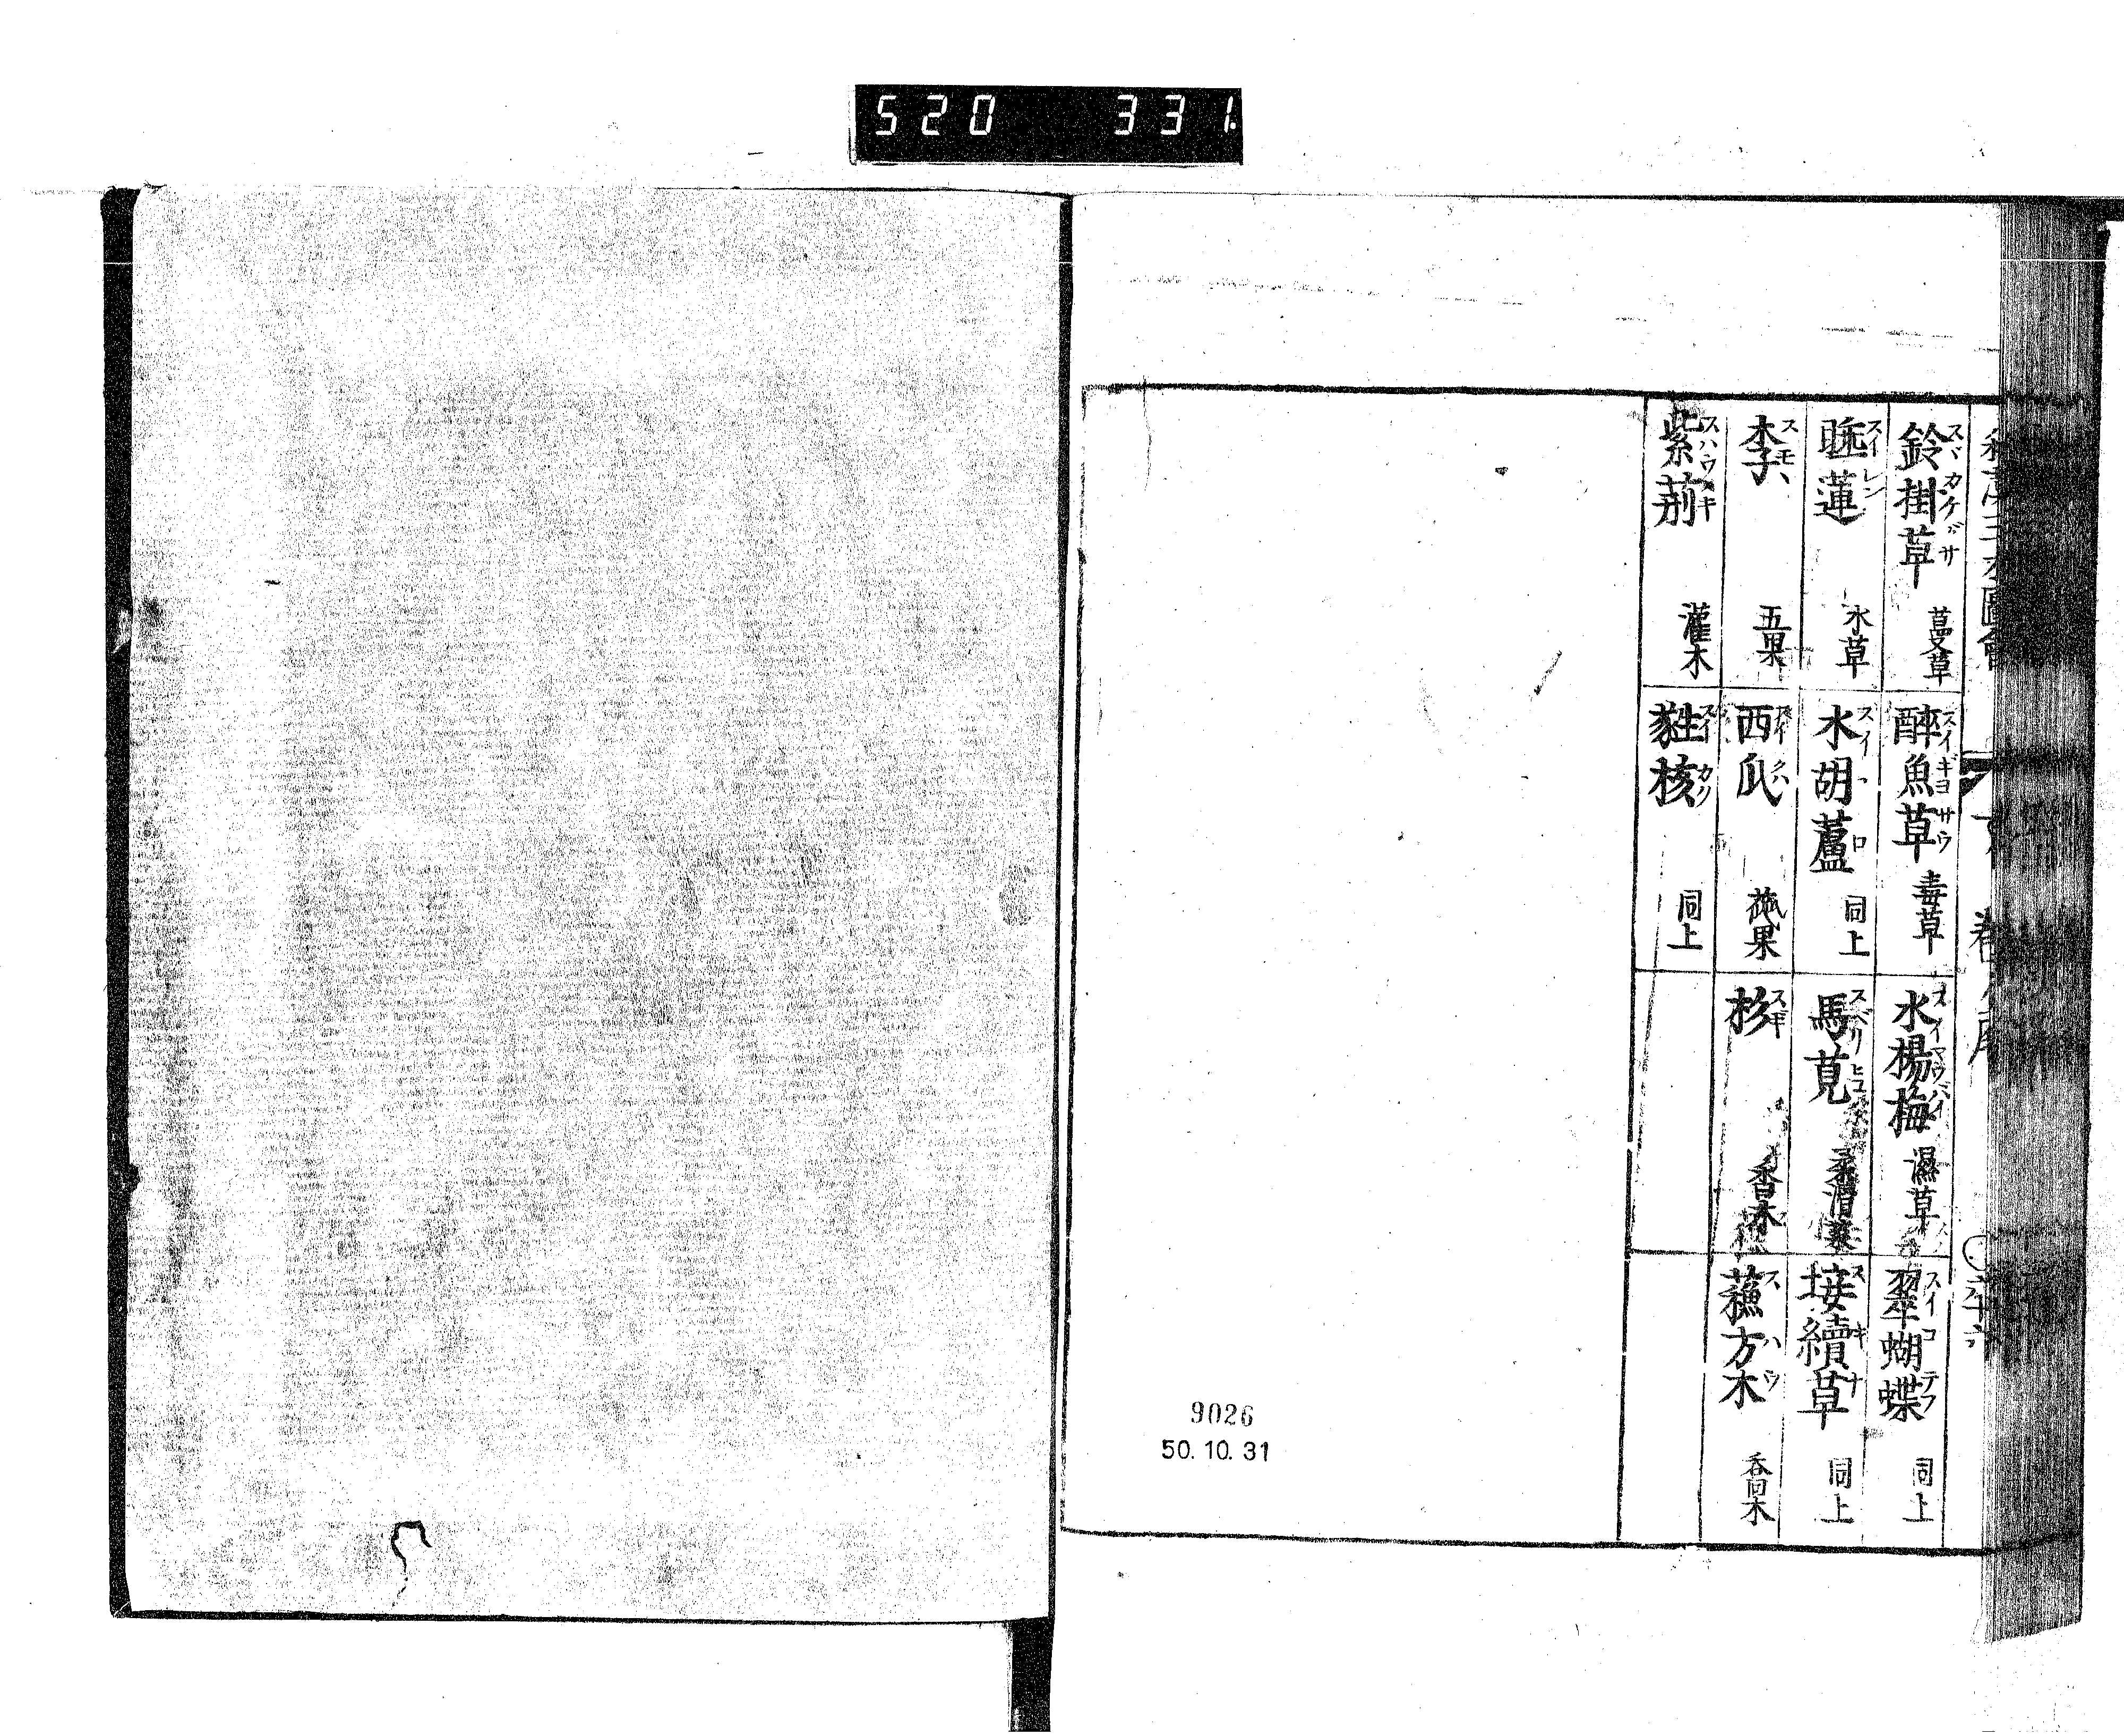 520 331
和漢三才圖會
鈴掛草 スヾカケグサ 蔓草
醉魚草 スイギヨサウ 毒草
水楊梅 スイヤウバイ 濕草
翠蝴蝶 スイコテフ 同上
睡蓮 スイレン 水草
水胡蘆 スイコロ 同上
馬莧 スベリヒユ 柔滑菜
接續草 スギナ 同上
李 スモヽ 五果
西瓜 スイクハ 蓏果
杉 スギ 香木
蘓方木 スハウ 香木
紫荊 スハウノキ 灌木
蕤核 スイカク 同上
9026
50.10.31